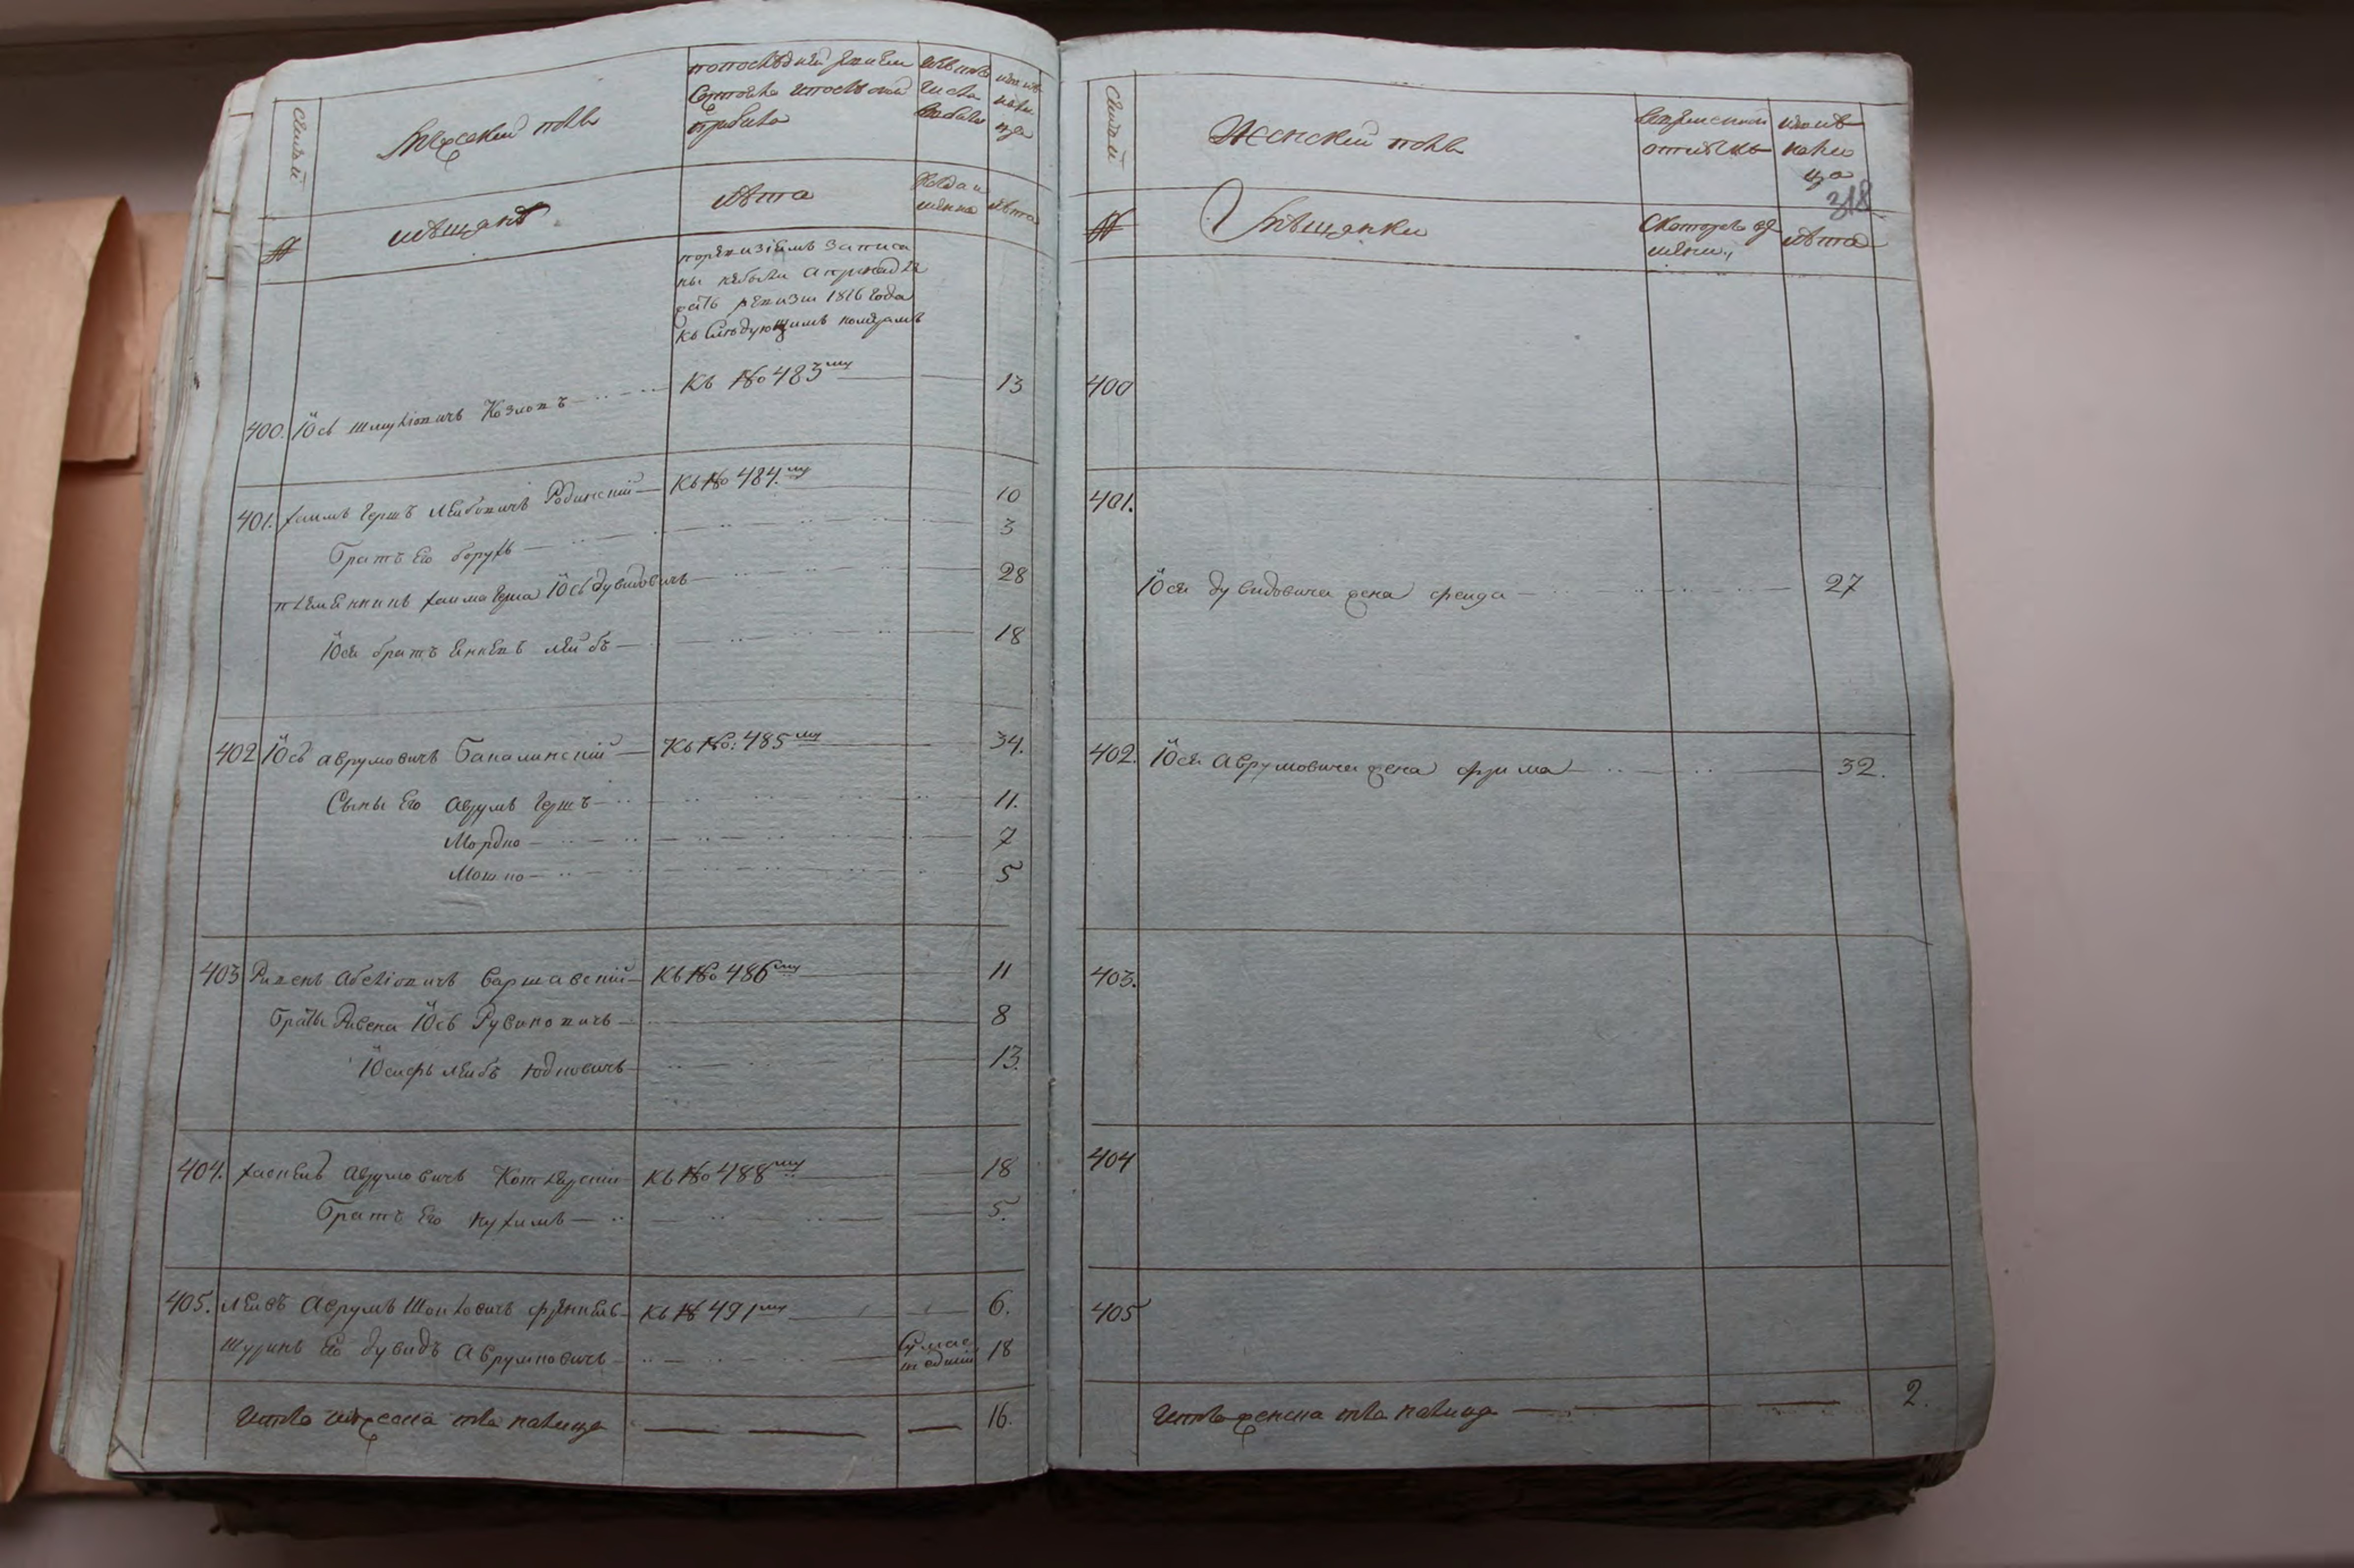 Семьи
Мужеский полъ
по последней ревизіи
состояло и после оной
прибыло
изъ того
числа
выбыло
ныне
нали
цо
№
мѣщанѣ
лѣта
когда и
лѣта
по ревизіямъ записа
ны небыли а принадле
жатъ ревизіи 1816 года
къ слѣдующимъ номерамъ
400. Іось Шмуліовичъ Козловъ къ № 483му 13
401. Хаимъ Гершъ Лейбовичъ Родинскій къ № 484.му 10
братъ его Борухъ 3
племянникъ Хаима Герша Іось Дувидовичъ 28
Іося братъ Янкель Лейбъ 18
402 Іось Аврумовичъ Бакалинскій къ №: 485му 34.
Сыны его Аврумъ Гершъ 11.
Мордко 7
Мошко 5
403 Рувенъ Абеліовичъ Варшавскій къ № 486му 11
братья Рувена Іось Рувиновичъ 8
Іосифъ Лейбъ Юдковичъ 13.
404. Хаскель Аврумовичъ Котлярскій къ № 488му 18
братъ его Нухимъ 5.
405. Лейбъ Аврумъ Шоиловичъ Френкель къ № 491му 6.
шуринъ его Дувидъ Аврумовичъ сумас
шедшій 18
Итого мужеска пола налицо 16.
Семьи
Женскій полъ
во временной
отлучке
ныне
нали
цо
318
№
Мѣщанки
с котораго вре
мени,
лѣта
400
401.
Іося Дувидовича жена Фрейда 27
402. Іося Аврумовича жена Фрима 32.
403.
404
405
Итого женска пола налицо 2.